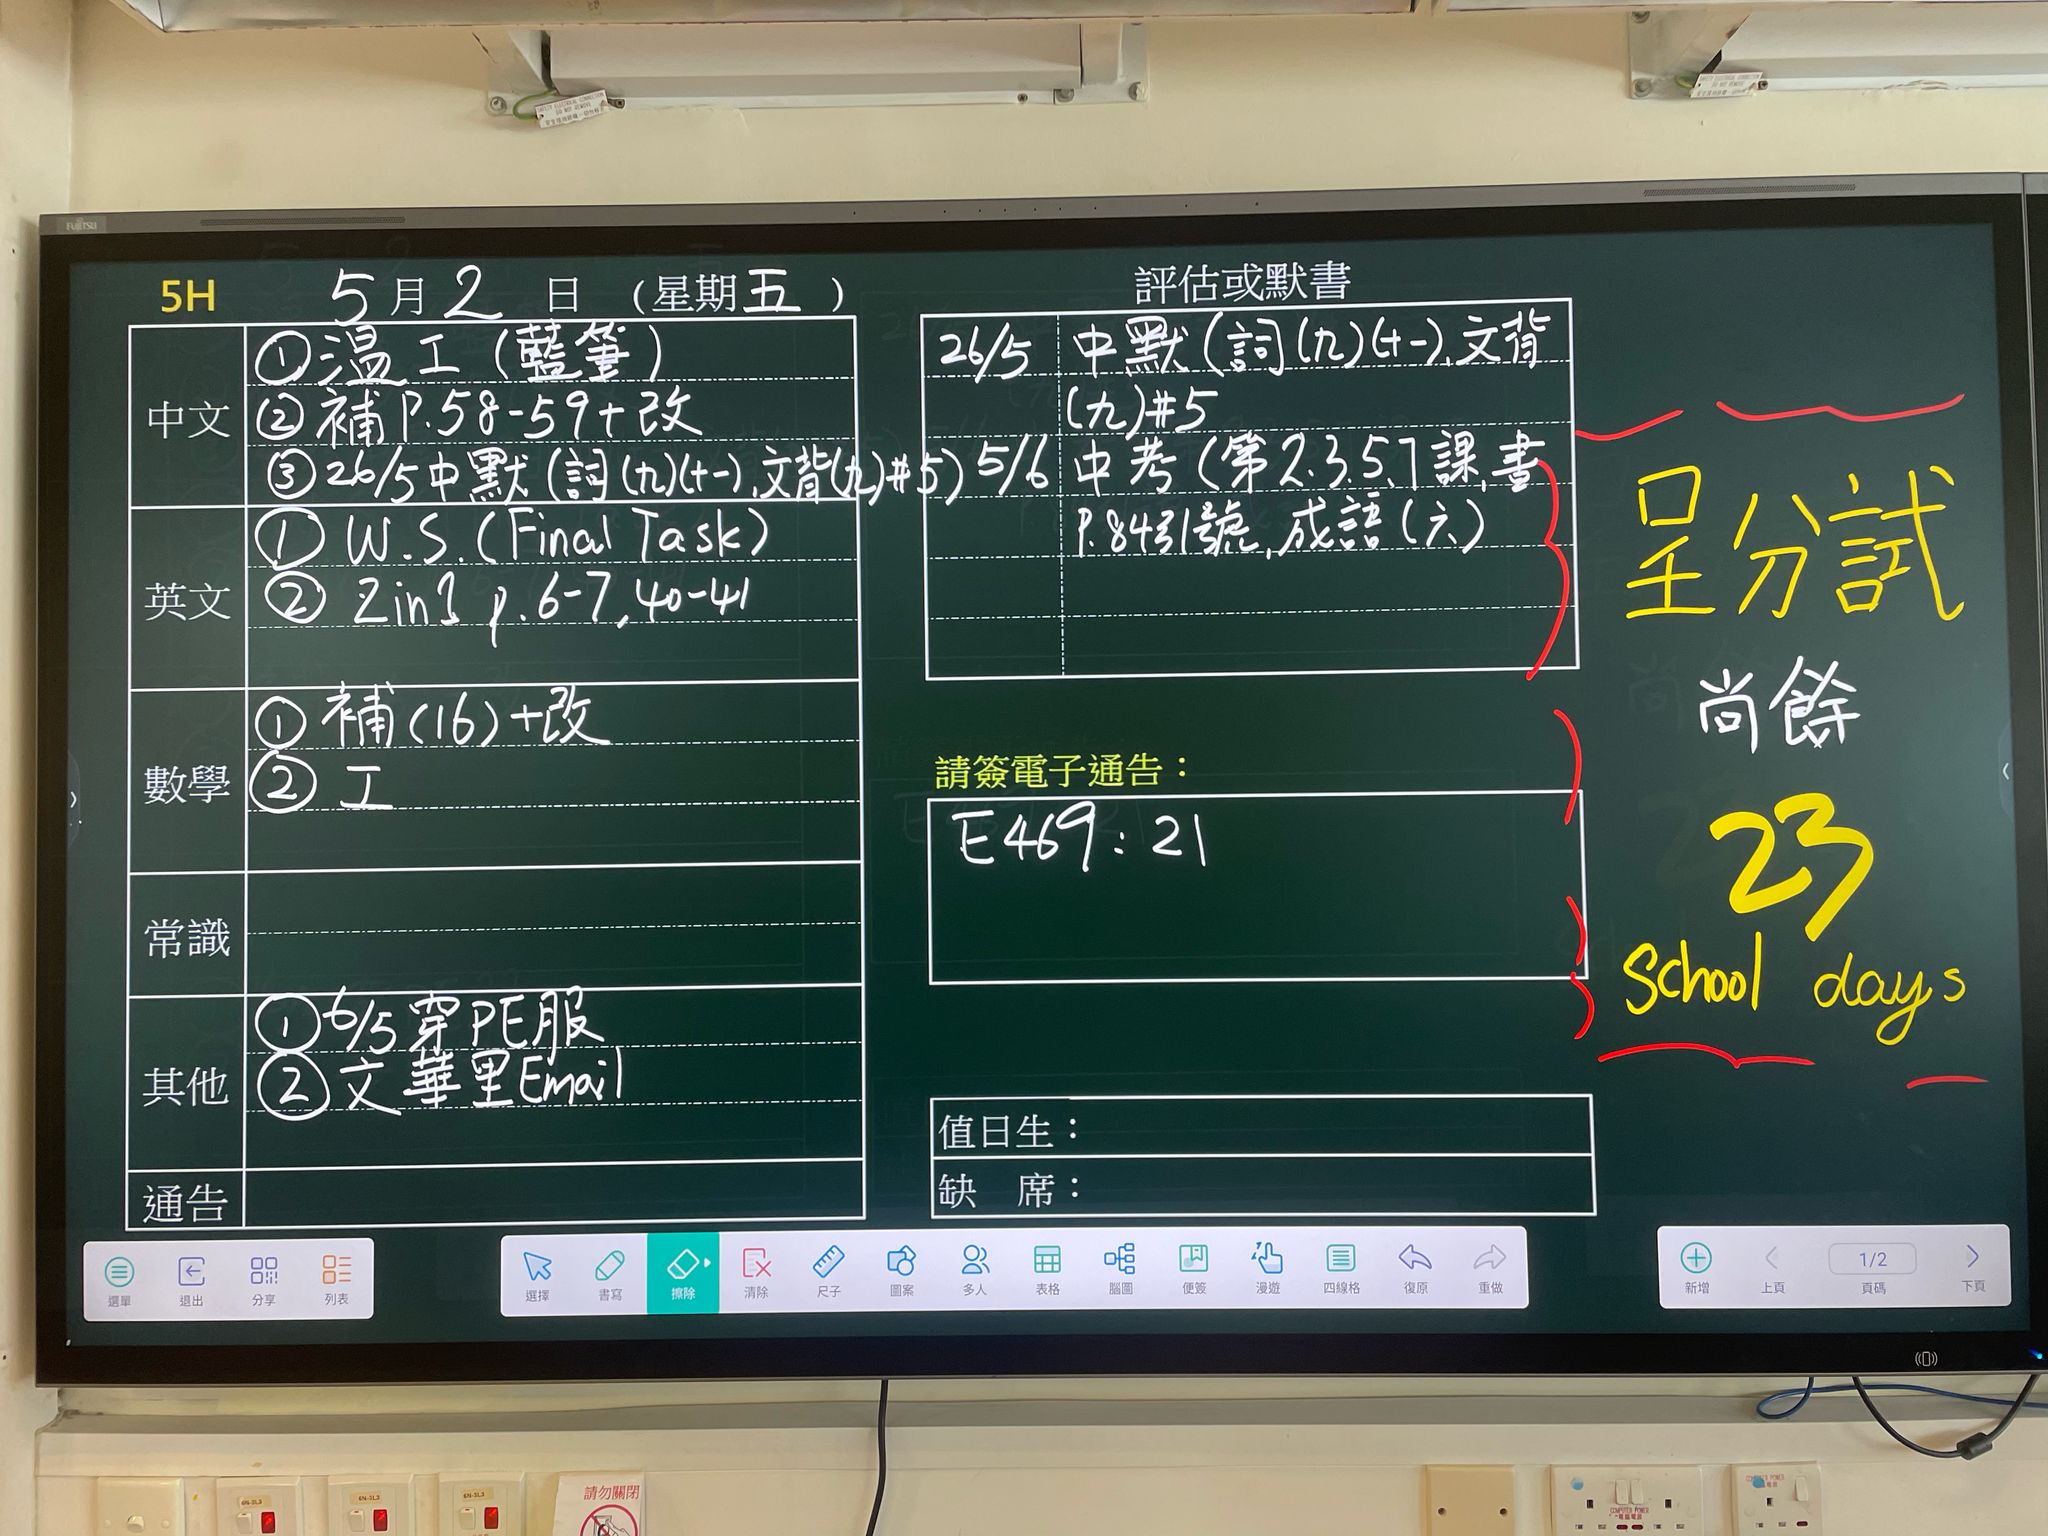 SAFETY ELECTRICAL CONNECTION
DO NOT REMOVE
FUJITSU
5H 5月2日 (星期五)
中文
①溫工(藍筆)
②補P.58-59+改
③26/5中默(詞(九)(十一),文背(九)#5)
英文
① W.S.(Final Task)
② 2in1 p.6-7,40-41
數學
①補(16)+改
②工
常識
其他
①6/5穿PE服
②文華里Email
通告
評估或默書
26/5 中默(詞(九)(十一),文背
(九)#5
5/6 中考(第2.3.5.7課,書
P.84引號,成語(六)
請簽電子通告：
E469:21
值日生：
缺 席：
呈分試
尚餘
23
School days
選單 退出 分享 列表
選擇 書寫 擦除 清除 尺子 圖案 多人 表格 腦圖 便簽 漫遊 四線格 復原 重做
新增 上頁 1/2 頁碼 下頁
6N-3L3
請勿關閉
COMPUTER POWER
電腦電源